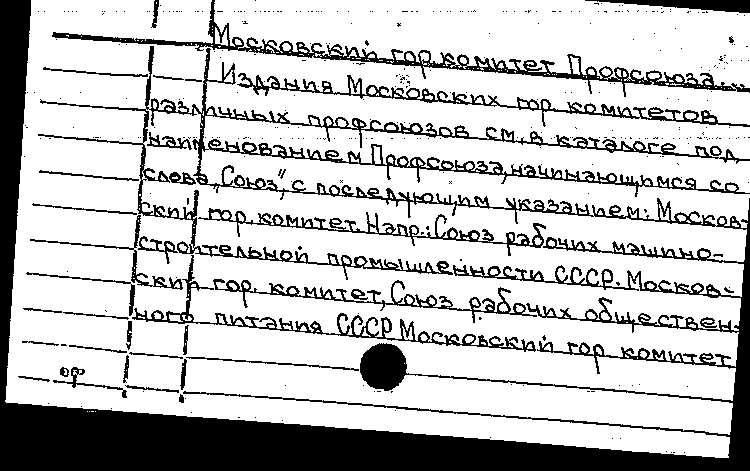 Московский гор. комитет Профсоюза...
Издания Московских гор комитетов
различных профсоюзов см. в каталоге под
наименованием Профсоюза, начинающимся со
слова „Союз“, с последующим указанием: Москов-
ский гор. комитет. Напр.: Союз рабочих машино-
строительной промышленности СССР. Москов-
ский гор. комитет, Союз рабочих обществен-
ного питания СССР Московский гор комитет